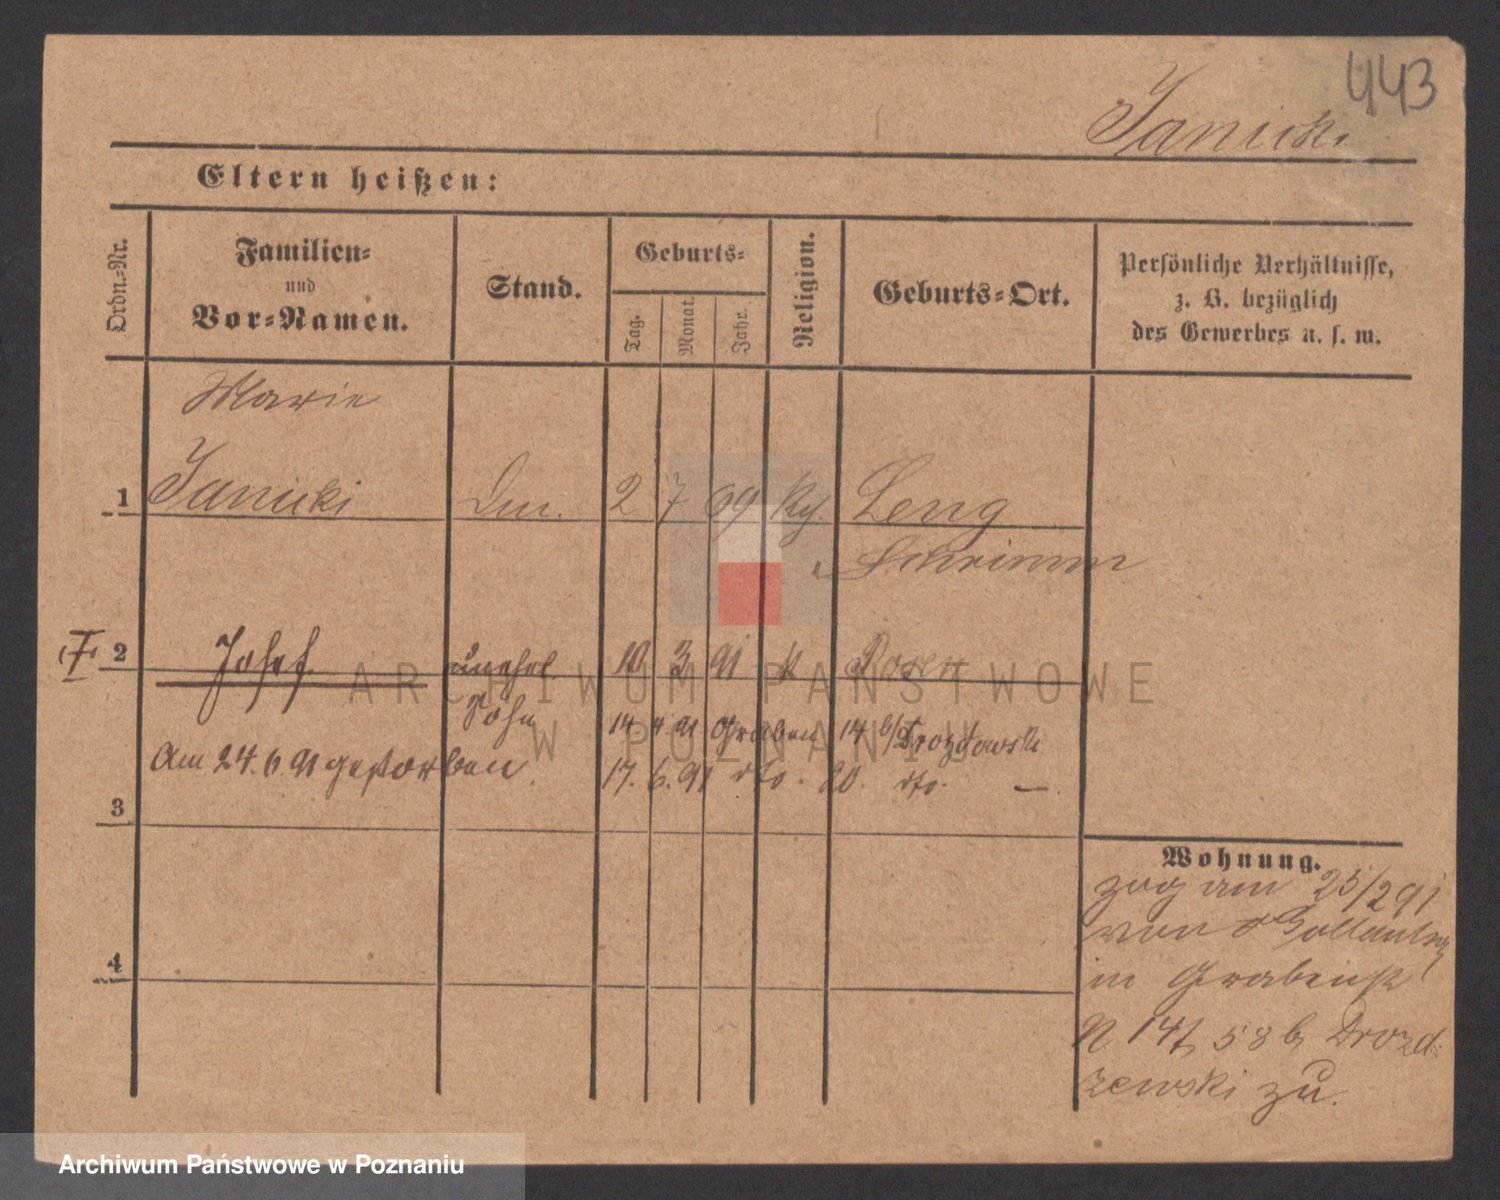 443
Janicki
Eltern heißen:
Ordn.-Nr.
Familien-
und
Vor-Namen.
Stand.
Geburts-
Tag.
Monat.
Jahr.
Religion.
Geburts-Ort.
Persönliche Verhältnisse,
z. B. bezüglich
des Gewerbes u. s. w.
Marie
1 Janicki 2 7 69 Leng
Schrimm
2 Josef unehel. 10 3 91 k Posen
Sohn 14 4 91 Graben 14 b/Drozdowski
Am 24.6.91 gestorben. 17. 6. 91 dto. 20. dto. —
3
4
Wohnung.
zog am 25/2 91
von
in Grabenstr
N 14 b Drozd-
zewski zu.
ARCHIWUM PAŃSTWOWE
W POZNANIU
Archiwum Państwowe w Poznaniu